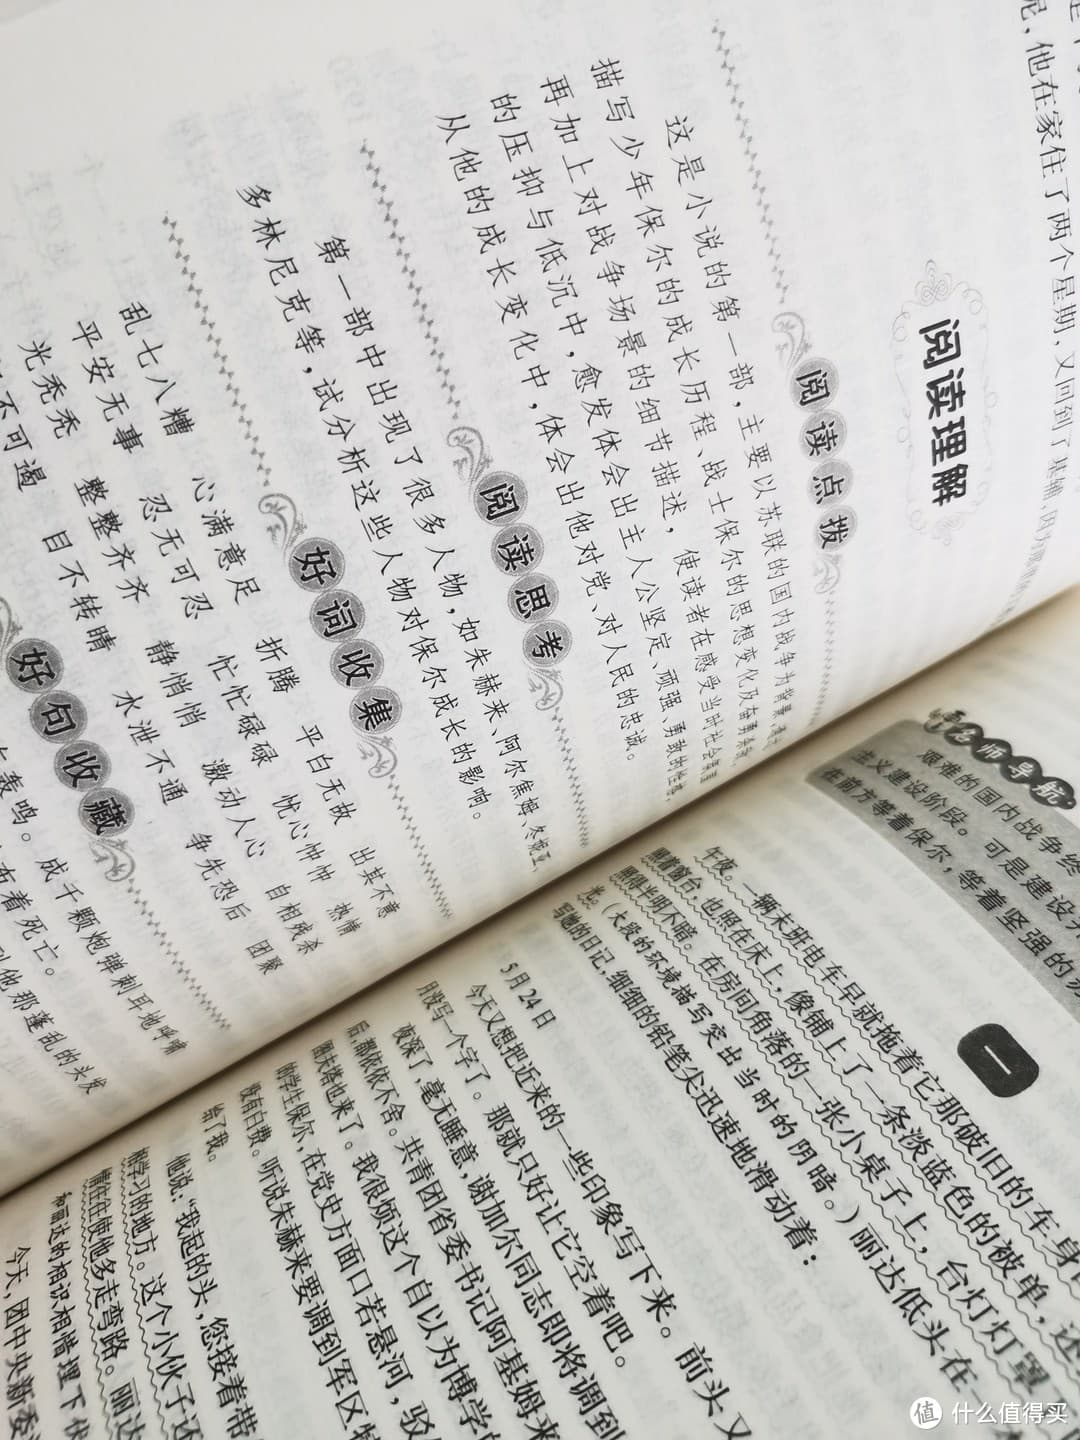 呢，他在家住了两个星期，又回到了
阅读理解
阅读点拨
这是小说的第一部，主要以苏联的国内战争为背景，
描写少年保尔的成长历程、战士保尔的思想变化及奋勇
再加上对战争场景的细节描述，使读者在感受当时社会
的压抑与低沉中，愈发体会出主人公坚定、顽强、勇敢的性格，
从他的成长变化中，体会出他对党、对人民的忠诚。
阅读思考
第一部中出现了很多人物，如朱赫来、阿尔焦姆、冬妮亚、
多林尼克等，试分析这些人物对保尔成长的影响。
好词收集
乱七八糟 心满意足 折腾 平白无故 出其不意
平安无事 忍无可忍 忙忙碌碌 忧心忡忡 热情
光秃秃 整整齐齐 静悄悄 激动人心 自相残杀
不可遏 目不转睛 水泄不通 争先恐后 团聚
好句收藏
轰鸣。成千颗炮弹刺耳地呼啸
布着死亡。
他那蓬乱的头发
名师导航
艰难的国内战争终
主义建设阶段。可是建设
在前方等着保尔，等着坚强的
一
午夜。一辆末班电车早就拖着它那破旧的车身
照着窗台，也照在床上，像铺上了一条淡蓝色的被单，还
照得半明不暗。在房间角落的一张小桌子上，台灯灯罩
光。（大段的环境描写突出当时的阴暗。）丽达低头在一
写她的日记，细细的铅笔尖迅速地滑动着：
5月24日
今天又想把近来的一些印象写下来。前头又
月没写一个字了。那就只好让它空着吧。
夜深了，毫无睡意，谢加尔同志即将调到
后，都依依不舍。共青团省委书记阿基姆来
图夫塔也来了。我很烦这个自以为博学的
的学生保尔，在党史方面口若悬河，驳
没有白费。听说朱赫来要调到军区特
给了我。
他说：“我起的头，您接着带
相学习的地方。这个小伙子还
情往往使他多走弯路。丽达
和丽达的相识相惜埋下伏
今天，团中央新委
值 什么值得买